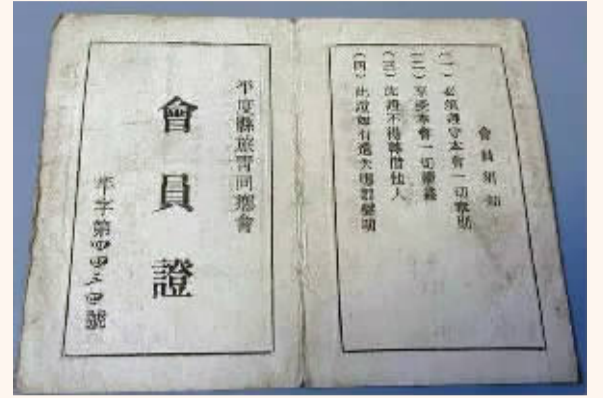 會員須知
(一)必須遵守本會一切章則
(二)享受本會一切權義
(三)此證不得轉借他人
(四)此證如有遺失應即聲明
平度縣旅青同鄉會
會員證
平字第四四三四號